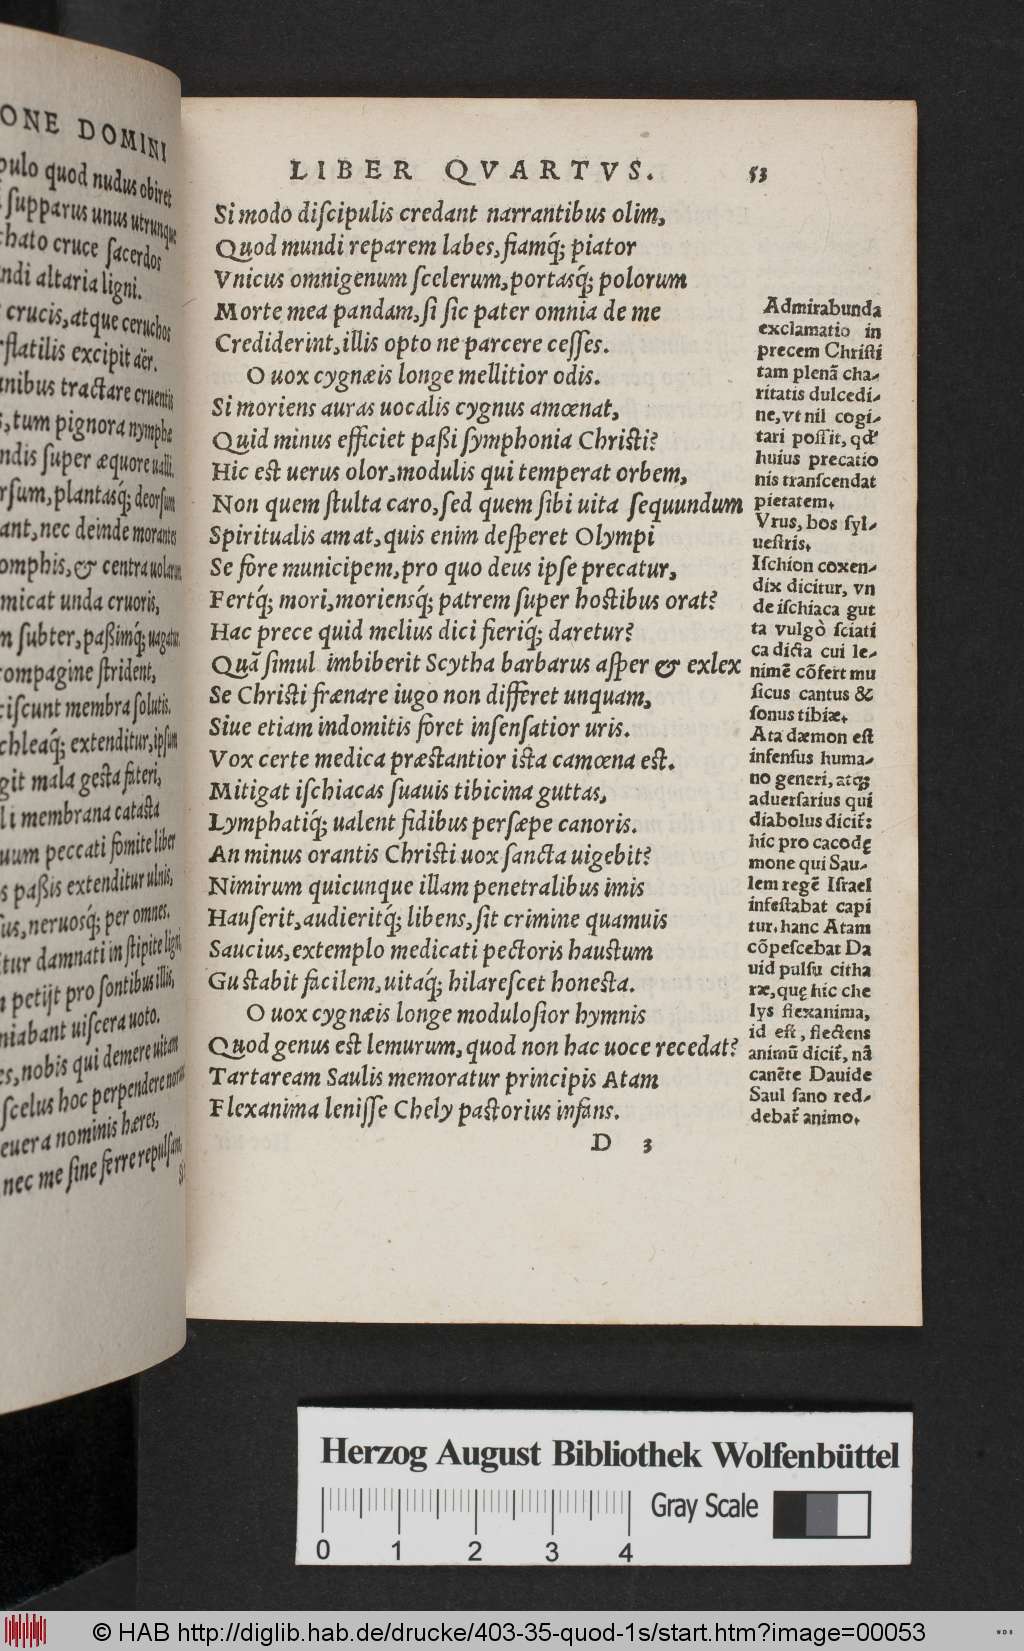 ONE DOMINI
pulo quod nudus obiret
ſupparus unus utrunque
chato cruce ſacerdos
ndi altaria ligni.
crucis, atque ceruchos
flatilis excipit aër.
nibus tractare cruentis
, tum pignora nymphæ
ndis ſuper æquore ualli.
rſum, plantasq́; deorſum
ant, nec deinde morantes
omphis, & centra uolarum
micat unda cruoris,
m ſubter, paßimq́; uagatur.
compagine ſtrident,
ciſcunt membra ſolutis.
chleaq́; extenditur, ipſum
git mala geſta fateri,
li membrana cataſta
uum peccati fomite liber
s paßis extenditur ulnis,
ſus, neruosq́; per omnes.
itur damnati in ſtipite ligni,
n petijt pro ſontibus illis,
niabant uiſcera uoto.
es, nobis qui demere uitam
ſcelus hoc perpendere
euera nominis hæres,
nec me ſine ferre repulſam,
LIBER QVARTVS. 53
Si modo diſcipulis credant narrantibus olim,
Quod mundi reparem labes, fiamq́; piator
Vnicus omnigenum ſcelerum, portasq́; polorum
Morte mea pandam, ſi ſic pater omnia de me
Crediderint, illis opto ne parcere ceſſes.
O uox cygnæis longe mellitior odis.
Si moriens auras uocalis cygnus amœnat,
Quid minus efficiet paßi ſymphonia Chriſti?
Hic eſt uerus olor, modulis qui temperat orbem,
Non quem ſtulta caro, ſed quem ſibi uita ſequundum
Spiritualis amat, quis enim deſperet Olympi
Se fore municipem, pro quo deus ipſe precatur,
Fertq́; mori, moriensq́; patrem ſuper hoſtibus orat?
Hac prece quid melius dici fieriq́; daretur?
Quã ſimul imbiberit Scytha barbarus aſper & exlex
Se Chriſti frænare iugo non differet unquam,
Siue etiam indomitis foret inſenſatior uris.
Vox certe medica præſtantior iſta camœna eſt.
Mitigat iſchiacas ſuauis tibicina guttas,
Lymphatiq́; ualent fidibus perſæpe canoris.
An minus orantis Chriſti uox ſancta uigebit?
Nimirum quicunque illam penetralibus imis
Hauſerit, audieritq́; libens, ſit crimine quamuis
Saucius, extemplo medicati pectoris hauſtum
Guſtabit facilem, uitaq́; hilareſcet honeſta.
O uox cygnæis longe moduloſior hymnis
Quod genus eſt lemurum, quod non hac uoce recedat?
Tartaream Saulis memoratur principis Atam
Flexanima leniſſe Chely paſtorius infans.
D 3
Admirabunda
exclamatio in
precem Chriſti
tam plenã cha-
ritatis dulcedi-
ne, vt nil cogi-
tari poſſit, qđ
huius precatio
nis tranſcendat
pietatem.
Vrus, bos ſyl-
ueſtris.
Iſchion coxen-
dix dicitur, vn
de iſchiaca gut
ta vulgò ſciati
ca dicta cui le-
nimẽ cõfert mu
ſicus cantus &
ſonus tibiæ.
Ata dæmon eſt
infenſus huma-
no generi, atq́;
aduerſarius qui
diabolus dicit̃:
hic pro cacodę
mone qui Sau-
lem regẽ Iſrael
infeſtabat capi
tur, hanc Atam
cõpeſcebat Da
uid pulſu citha
ræ, quę hic che
lys flexanima,
id eſt, flectens
animũ dicit̃, nã
canẽte Dauide
Saul ſano red-
debat̃ animo.
Herzog August Bibliothek Wolfenbüttel
Gray Scale
0 1 2 3 4
© HAB http://diglib.hab.de/drucke/403-35-quod-1s/start.htm?image=00053